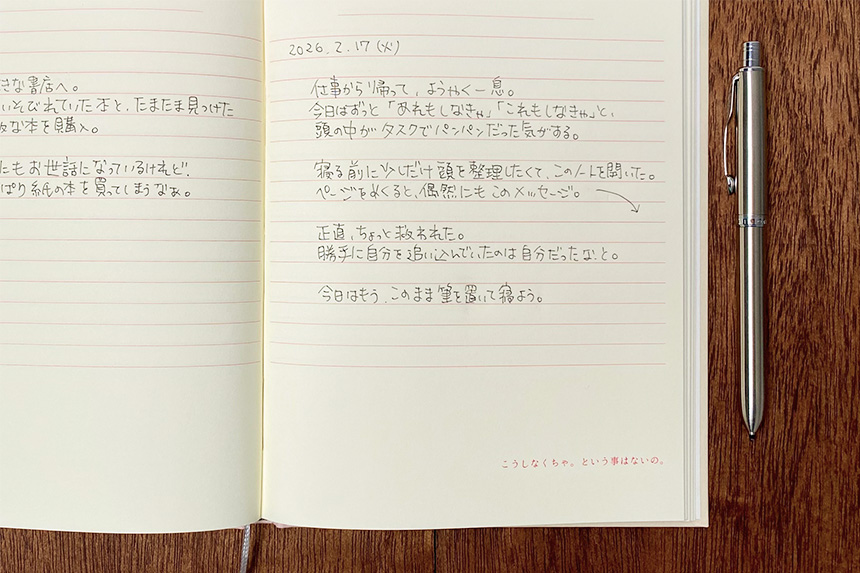 きな書店へ。
いそびれていた本と、たまたま見つけた
な本を購入。
にもお世話になっているけれど、
ぱり紙の本を買ってしまうなぁ。
2026.2.17(火)
仕事から帰って、ようやく一息。
今日はずっと「あれもしなきゃ」「これもしなきゃ」と、
頭の中がタスクでパンパンだった気がする。
寝る前に少しだけ頭を整理したくて、このノートを開いた。
ページをめくると、偶然にもこのメッセージ。
正直、ちょっと救われた。
勝手に自分を追い込んでいたのは自分だったな、と。
今日はもう、このまま筆を置いて寝よう。
こうしなくちゃ。という事はないの。